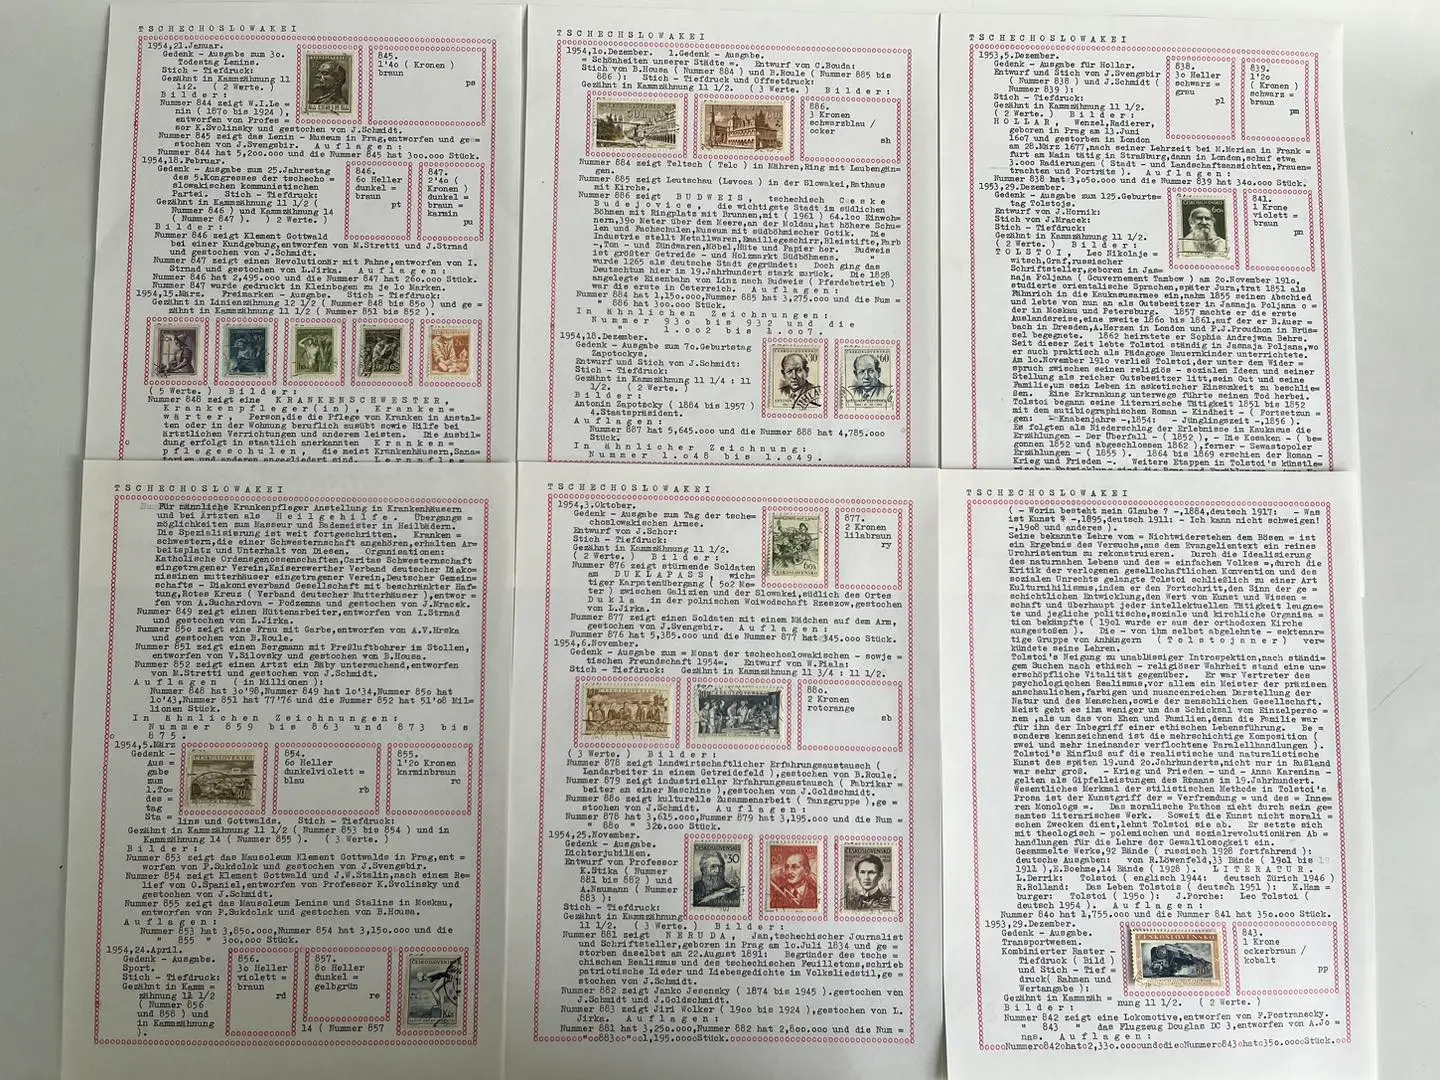 TSCHECHOSLOWAKEI
1954,21.Januar.
Gedenk - Ausgabe zum 30.
Todestag Lenins.
Stich - Tiefdruck:
Gezähnt in Kammzähnung 11
1:2. ( 2 Werte. )
Bilder:
Nummer 844 zeigt W.I.Le =
nin ( 1870 bis 1924 ),
entworfen von Profes =
sor K.Svolinsky und gestochen von J.Schmidt.
Nummer 845 zeigt das Lenin - Museum in Prag,entworfen und ge =
stochen von J.Svengsbir. Auflagen:
Nummer 844 hat 5,200.000 und die Nummer 845 hat 300.000 Stück.
845.
1'40 ( Kronen )
braun
ps
1954,18.Februar.
Gedenk - Ausgabe zum 25.Jahrestag
des 5.Kongresses der tschecho =
slowakischen kommunistischen
Partei. Stich - Tiefdruck:
Gezähnt in Kammzähnung 11 1/2 (
Nummer 846 ) und Kammzähnung 14
( Nummer 847 ). ( 2 Werte. )
Bilder:
846.
60 Heller
dunkel =
braun
pt
847.
2'40 (
Kronen )
dunkel =
braun =
karmin
pu
Nummer 846 zeigt Klement Gottwald
bei einer Kundgebung,entworfen von M.Stretti und J.Strnad
und gestochen von J.Schmidt.
Nummer 847 zeigt einen Revolutionär mit Fahne,entworfen von I.
Strnad und gestochen von L.Jirka. Auflagen:
Nummer 846 hat 2,495.000 und die Nummer 847 hat 260.000 Stück.
Nummer 847 wurde gedruckt in Kleinbogen zu je 10 Marken.
1954,15.März. Freimarken - Ausgabe. Stich - Tiefdruck:
Gezähnt in Linienzähnung 12 1/2 ( Nummer 848 bis 850 ) und ge =
zähnt in Kammzähnung 11 1/2 ( Nummer 851 bis 852 ).
( 5 Werte. ) Bilder:
Nummer 848 zeigt eine KRANKENSCHWESTER,
Krankenpfleger(in), Kranken =
wärter, Person,die die Pflege von Kranken in Anstal=
ten oder in der Wohnung beruflich ausübt sowie Hilfe bei
ärztlichen Verrichtungen und anderem leisten. Die Ausbil=
dung erfolgt in staatlich anerkannten Kranken =
pflegeschulen, die meist Krankenhäusern,Sana=
TSCHECHSLOWAKEI
1954,10.Dezember. 1.Gedenk - Ausgabe.
= Schönheiten unserer Städte =. Entwurf von C.Bouda:
Stich von B.Housa ( Nummer 884 ) und B.Roule ( Nummer 885 bis
886 ): Stich - Tiefdruck und Offsetdruck:
Gezähnt in Kammzähnung 11 1/2. ( 3 Werte. ) Bilder:
886.
3 Kronen
schwarzblau /
ocker
sh
Nummer 884 zeigt Teltsch ( Telc ) in Mähren,Ring mit Laubengän=
gen.
Nummer 885 zeigt Leutschau (Levoca ) in der Slowakei,Rathaus
mit Kirche.
Nummer 886 zeigt BUDWEIS, tschechisch Ceske
Budejovice, die wichtigste Stadt im südlichen
Böhmen mit Ringplatz mit Brunnen,mit ( 1961 ) 64.100 Einwoh =
nern,390 Meter über dem Meere,an der Moldau,hat höhere Schu =
len und Fachschulen,Museum mit südböhmischer Gotik. Die
Industrie stellt Metallwaren,Emaillegeschirr,Bleistifte,Farb
-,Ton - und Zündwaren,Möbel,Hüte und Papier her. Budweis
ist größter Getreide - und Holzmarkt Südböhmens. "
wurde 1265 als deutsche Stadt gegründet: Doch ging das
Deutschtum hier im 19.Jahrhundert stark zurück. Die 1828
angelegte Eisenbahn von Linz nach Budweis ( Pferdebetrieb )
war die erste in Österreich. Auflagen:
Nummer 884 hat 1,150.000,Nummer 885 hat 3,275.000 und die Num =
mer 886 hat 300.000 Stück.
In ähnlichen Zeichnungen:
Nummer 930 bis 932 und die
" 1.002 bis 1.007.
1954,18.Dezember.
Gedenk - Ausgabe zum 70.Geburtstag
Zapotockys.
Entwurf und Stich von J.Schmidt:
Stich - Tiefdruck:
Gezähnt in Kammzähnung 11 1/4 : 11
1/2. ( 2 Werte. )
Bilder:
Antonin Zapotocky ( 1884 bis 1957 )
4.Staatspräsident.
Auflagen:
Nummer 887 hat 5,645.000 und die Nummer 888 hat 4,785.000
Stück.
In ähnlicher Zeichnung:
Nummer 1.048 bis 1.049.
TSCHECHOSLOWAKEI
1953,5.Dezember.
Gedenk - Ausgabe für Hollar.
Entwurf und Stich von J.Svengsbir
( Nummer 838 ) und J.Schmidt (
Nummer 839 ):
Stich - Tiefdruck:
Gezähnt in Kammzähnung 11 1/2.
( 2 Werte. ) Bilder:
HOLLAR, Wenzel,Radierer,
geboren in Prag am 13.Juni
1607 und gestorben in London
am 28.März 1677,nach seiner Lehrzeit bei M.Merian in Frank =
furt am Main tätig in Straßburg,dann in London,schuf etwa
3.000 Radierungen ( Stadt - und Landschaftsansichten,Frauen=
trachten und Porträts ). Auflagen:
Nummer 838 hat 3,050.000 und die Nummer 839 hat 340.000 Stück.
838.
30 Heller
schwarz =
grau
pl
839.
1'20
( Kronen )
schwarz =
braun
pm
1953,29.Dezember.
Gedenk - Ausgabe zum 125.Geburts=
tag Tolstojs.
Entwurf von J.Hornik:
Stich von J.Mracek:
Stich - Tiefdruck:
Gezähnt in Kammzähnung 11 1/2.
( 2 Werte. ) Bilder:
TOLSTOI, Leo Nikolaje =
witsch,Graf,russischer
Schriftsteller,geboren in Jas=
841.
1 Krone
violett =
braun
pn
naja Poljana ( Gouvernement Tambow ) am 20.November 1910,
studierte orientalische Sprachen,später Jura,trat 1851 als
Fähnrich in die Kaukasusarmee ein,nahm 1855 seinen Abschied
und lebte von nun an als Gutsbesitzer in Jasnaja Poljana o =
der in Moskau und Petersburg. 1857 machte er die erste
Auslandsreise,eine zweite 1860 bis 1861,auf der er B.Auer =
bach in Dresden,A.Herzen in London und P.J.Proudhon in Brüs=
sel begegnete. 1862 heiratete er Sophia Andrejwna Behrs.
Seit dieser Zeit lebte Tolstoi ständig in Jasnaja Poljana,wo
er auch praktisch als Pädagoge Bauernkinder unterrichtete.
Am 10.November 1910 verließ Tolstoi,der unter dem Wider =
spruch zwischen seinen religiös - sozialen Ideen und seiner
Stellung als reicher Gutsbesitzer litt,sein Gut und seine
Familie,um sein Leben in asketischer Einsamkeit zu beschlie=
ßen. Eine Erkrankung unterwegs führte seinen Tod herbei.
Tolstoi begann seine literarische Tätigkeit 1851 bis 1852
mit dem autibiographischen Roman - Kindheit - ( Fortsetzun =
gen: - Knabenjahre -,1854: - Jünglingszeit -,1856 ).
Es folgten als Niederschlag der Erlebnisse im Kaukasus die
Erzählungen - Der Überfall - ( 1852 ), - Die Kosaken - ( be=
gonnen 1852 und abgeschlossen 1862 ),ferner - Sewastopoler
Erzählungen - ( 1855 ). 1864 bis 1869 erschien der Roman -
Krieg und Frieden -. Weitere Etappen in Tolstoi's künstle=
TSCHECHOSLOWAKEI
Für männliche Krankenpfleger Anstellung in Krankenhäusern
und bei Ärzten als Heilgehilfe. Übergangs =
möglichkeiten zum Masseur und Bademeister in Heilbädern.
Die Spezialisierung ist weit fortgeschritten. Kranken =
schwestern,die einer Schwesternschaft angehören,erhalten Ar=
beitsplatz und Unterhalt von Diesen. Organisationen:
Katholische Ordensgenossenschaften,Caritas Schwesternschaft
eingetragener Verein,Kaiserswerther Verband deutscher Diako=
nissinen mutterhäuser eingetragener Verein,Deutscher Gemein=
schafts - Diakonieverband Gesellschaft mit beschränkter Haf=
tung,Rotes Kreuz ( Verband deutscher Mutterhäuser ),entwor =
fen von A.Suchardova - Podzemna und gestochen von J.Mracek.
Nummer 849 zeigt einen Hüttenarbeiter,entworfen von I.Strnad
und gestochen von L.Jirka.
Nummer 850 zeigt eine Frau mit Garbe,entworfen von A.V.Hrska
und gestochen von B.Roule.
Nummer 851 zeigt einen Bergmann mit Preßluftbohrer im Stollen,
entworfen von V.Silovsky und gestochen von B.Housa.
Nummer 852 zeigt einen Artzt ein Baby untersuchend,entworfen
von M.Stretti und gestochen von J.Schmidt.
Auflagen ( in Millionen ):
Nummer 848 hat 30'98,Nummer 849 hat 10'34,Nummer 850 hat
10'43,Nummer 851 hat 77'76 und die Nummer 852 hat 51'08 Mil=
lionen Stück.
In ähnlichen Zeichnungen:
Nummer 859 bis 863 und 873 bis
875.
1954,5.März
Gedenk -
Aus =
gabe
zum
1.To=
des =
tag
Sta =
854.
60 Heller
dunkelviolett =
blau
rb
855.
1'20 Kronen
karminbraun
rc
lins und Gottwalds. Stich - Tiefdruck:
Gezähnt in Kammzähnung 11 1/2 ( Nummer 853 bis 854 ) und in
Kammzähnung 14 ( Nummer 855 ). ( 3 Werte. )
Bilder:
Nummer 853 zeigt das Mausoleum Klement Gottwalds in Prag,ent =
worfen von P.Sukdolak und gestochen von J.Svengsbir.
Nummer 854 zeigt Klement Gottwald und J.W.Stalin,nach einem Re=
lief von O.Spaniel,entworfen von Professor K.Svolinsky und
gestochen von J.Schmidt.
Nummer 855 zeigt das Mausoleum Lenins und Stalins in Moskau,
entworfen von P.Sukdolak und gestochen von B.Housa.
Auflagen:
Nummer 853 hat 3,850.000,Nummer 854 hat 3,150.000 und die
" 855 " 300.000 Stück.
1954,24.April.
Gedenk - Ausgabe.
Sport.
Stich - Tiefdruck:
Gezähnt in Kamm =
zähnung 11 1/2
( Nummer 856
und 858 ) und
in Kammzähnung
14 ( Nummer 857
).
856.
30 Heller
violett =
braun
rd
857.
80 Heller
dunkel =
gelbgrün
re
TSCHECHOSLOWAKEI
1954,3.Oktober.
Gedenk - Ausgabe zum Tag der tsche=
choslowakischen Armee.
Entwurf von J.Schor:
Stich - Tiefdruck:
Gezähnt in Kammzähnung 11 1/2.
( 2 Werte. ) Bilder:
Nummer 876 zeigt stürmende Soldaten
am DUKLAPASS, wich=
tiger Karpatenübergang ( 502 Me=
ter ) zwischen Galizien und der Slowakei,südlich des Ortes
Dukla in der polnischen Woiwodschaft Rzeszow,gestochen
von L.Jirka.
Nummer 877 zeigt einen Soldaten mit einem Mädchen auf dem Arm,
gestochen von J.Svengsbir. Auflagen:
Nummer 876 hat 5,385.000 und die Nummer 877 hat 345.000 Stück.
877.
2 Kronen
lilabraun
ry
1954,6.November.
Gedenk - Ausgabe zum = Monat der tschechoslowakischen - sowje =
tischen Freundschaft 1954=. Entwurf von W.Fiala:
Stich - Tiefdruck: Gezähnt in Kammzähnung 11 3/4 : 11 1/2.
880.
2 Kronen
rotorange
sb
( 3 Werte. ) Bilder:
Nummer 878 zeigt landwirtschaftlicher Erfahrungsaustausch (
Landarbeiter in einem Getreidefeld ),gestochen von B.Roule.
Nummer 879 zeigt industrieller Erfahrungsaustausch ( Fabrikar =
beiter an einer Maschine ),gestochen von J.Goldschmidt.
Nummer 880 zeigt kulturelle Zusammenarbeit ( Tanzgruppe ),ge =
stochen von J.Schmidt. Auflagen:
Nummer 878 hat 3,615.000,Nummer 879 hat 3,195.000 und die Num =
mer 880 " 320.000 Stück.
1954,25.November.
Gedenk - Ausgabe.
Dichterjubiläen.
Entwurf von Professor
K.Stika ( Nummer
881 bis 882 ) und
A.Naumann ( Nummer
883 ):
Stich - Tiefdruck:
Gezähnt in Kammzähnung
11 1/2. ( 3 Werte. ) Bilder:
Nummer 881 zeigt NERUDA, Jan,tschechischer Journalist
und Schriftsteller,geboren in Prag am 10.Juli 1834 und ge =
storben daselbst am 22.August 1891: Begründer des tsche =
chischen Realismus und des tschechischen Feuilletons,schrieb
patriotische Lieder und Liebesgedichte im Volksliedstil,ge =
stochen von J.Schmidt.
Nummer 882 zeigt Janko Jesensky ( 1874 bis 1945 ).gestochen von
J.Schmidt und J.Goldschmidt.
Nummer 883 zeigt Jiri Wolker ( 1900 bis 1924 ),gestochen von L.
Jirka. Auflagen:
Nummer 881 hat 3,250.000,Nummer 882 hat 2,800.000 und die Num =
" 883 " 1,195.000 Stück.
TSCHECHOSLOWAKEI
( - Worin besteht mein Glaube ? -,1884,deutsch 1917: - Was
ist Kunst ? -,1895,deutsch 1911: - Ich kann nicht schweigen!
-,1908 und andere ).
Seine bekannte Lehre vom = Nichtwiderstehen dem Bösen = ist
ein Ergebnis des Versuchs,aus dem Evangelientext ein reines
Urchristentum zu rekonstruieren. Durch die Idealisierung
des naturalen Lebens und des = einfachen Volkes =,durch die
Kritik der verlogenen gesellschaftlichen Konvention und des
sozialen Unrechts gelangte Tolstoi schließlich zu einer Art
Kulturnihilismus,indem er den Fortschritt,den Sinn der ge =
schichtlichen Entwicklung,den Wert von Kunst und Wissen =
schaft und überhaupt jeder intellektuellen Tätigkeit leugne=
te und jegliche politische,soziale und kirchliche Organisa =
tion bekämpfte ( 1901 wurde er aus der orthodoxen Kirche
ausgestoßen ). Die - von ihm selbst abgelehnte - sektenar=
tige Gruppe von Anhängern ( Tolstojaner ) ver=
kündete seine Lehren.
Tolstoi's Neigung zu unablässiger Introspektion,nach ständi=
gem Suchen nach ethisch - religiöser Wahrheit stand eine un=
erschöpfliche Vitalität gegenüber. Er war Vertreter des
psychologischen Realismus,vor allem ein Meister der präzisen
anschaulichen,farbigen und nuancenreichen Darstellung der
Natur und des Menschen,sowie der menschlichen Gesellschaft.
Meist geht es ihm weniger um das Schicksal von Einzelperso =
nen ,als um das von Ehen und Familien,denn die Familie war
für ihn der Inbegriff einer ethischen Lebensführung. Be =
sonders kennzeichnend ist die mehrschichtige Komposition (
zwei und mehr ineinander verflochtene Parallelhandlungen ).
Tolstoi's Einfluß auf die realistische und naturalistische
Kunst des späten 19.und 20.Jahrhunderts,nicht nur in Rußland
war sehr groß. - Krieg und Frieden - und - Anna Karenina -
gelten als Gipfelleistungen des Romans im 19.Jahrhundert.
Wesentliches Merkmal der stilistischen Methode in Tolstoi's
Prosa ist der Kunstgriff der = Verfremdung = und des = Inne=
ren Monologs =. Das moralische Pathos zieht durch sein ge=
samtes literarisches Werk. Soweit die Kunst nicht morali =
schen Zwecken dient,lehnt Tolstoi sie ab. Er setzte sich
mit theologisch - polemischen und sozialrevolutionären Ab =
handlungen für die Lehre der Gewaltlosigkeit ein.
Gesammelte Werke,92 Bände ( russisch 1928 fortfahrend ):
deutsche Ausgaben: von R.Löwenfeld,33 Bände ( 1901 bis
1911 ),E.Boehme,14 Bände ( 1928 ). LITERATUR.
L.Derrik: Tolstoi ( englisch 1944: deutsch Zürich 1946 )
R.Rolland: Das Leben Tolstois ( deutsch 1951 ): K.Ham =
burger: Tolstoi ( 1950 ): J.Porche: Leo Tolstoi (
deutsch 1954 ). Auflagen:
Nummer 840 hat 1,755.000 und die Nummer 841 hat 350.000 Stück.
1953,29.Dezember.
Gedenk - Ausgabe.
Transportwesen.
Kombinierter Raster -
Tiefdruck ( Bild )
und Stich - Tief =
druck( Rahmen und
Wertangabe ):
Gezähnt in Kammzäh =
nung 11 1/2. ( 2 Werte. )
Bilder:
843.
1 Krone
ockerbraun /
kobalt
pp
Nummer 842 zeigt eine Lokomotive,entworfen von F.Postranecky.
" 843 " das Flugzeug Douglas DC 3,entworfen von A.Jo =
nas. Auflagen:
Nummer 842 hat 2,330.000 und die Nummer 843 hat 350.000 Stück.